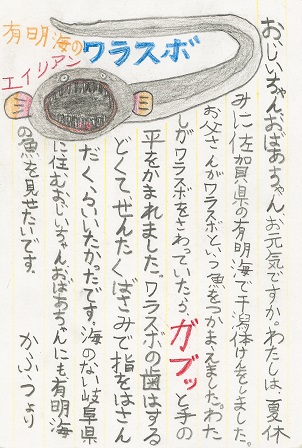 有明海の
エイリアン
ワラスボ
おじいちゃん、おばあちゃん、お元気ですか。わたしは、夏休
みに佐賀県の有明海で干潟体けんをしました。
お父さんがワラスボという魚をつかまえました。わた
しがワラスボをさわっていたらガブッと手の
平をかまれました。ワラスボの歯はする
どくてせんたくばさみで指をはさん
だくらいいたかったです。海のない岐阜県
に住むおじいちゃんおばあちゃんにも有明海
の魚を見せたいです。
かふつより